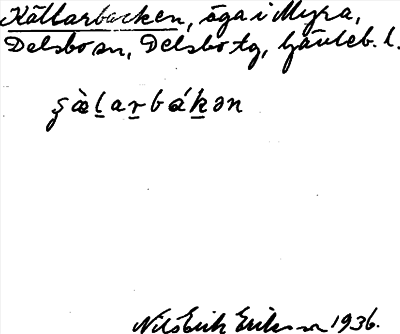 Källarbacken, äga i Myra,
Delsbo sn, Delsbo tg, Gävleb. l.
ʂæ̀l̲ar̲bák̲ən
Nils Erik Eriksson 1936.